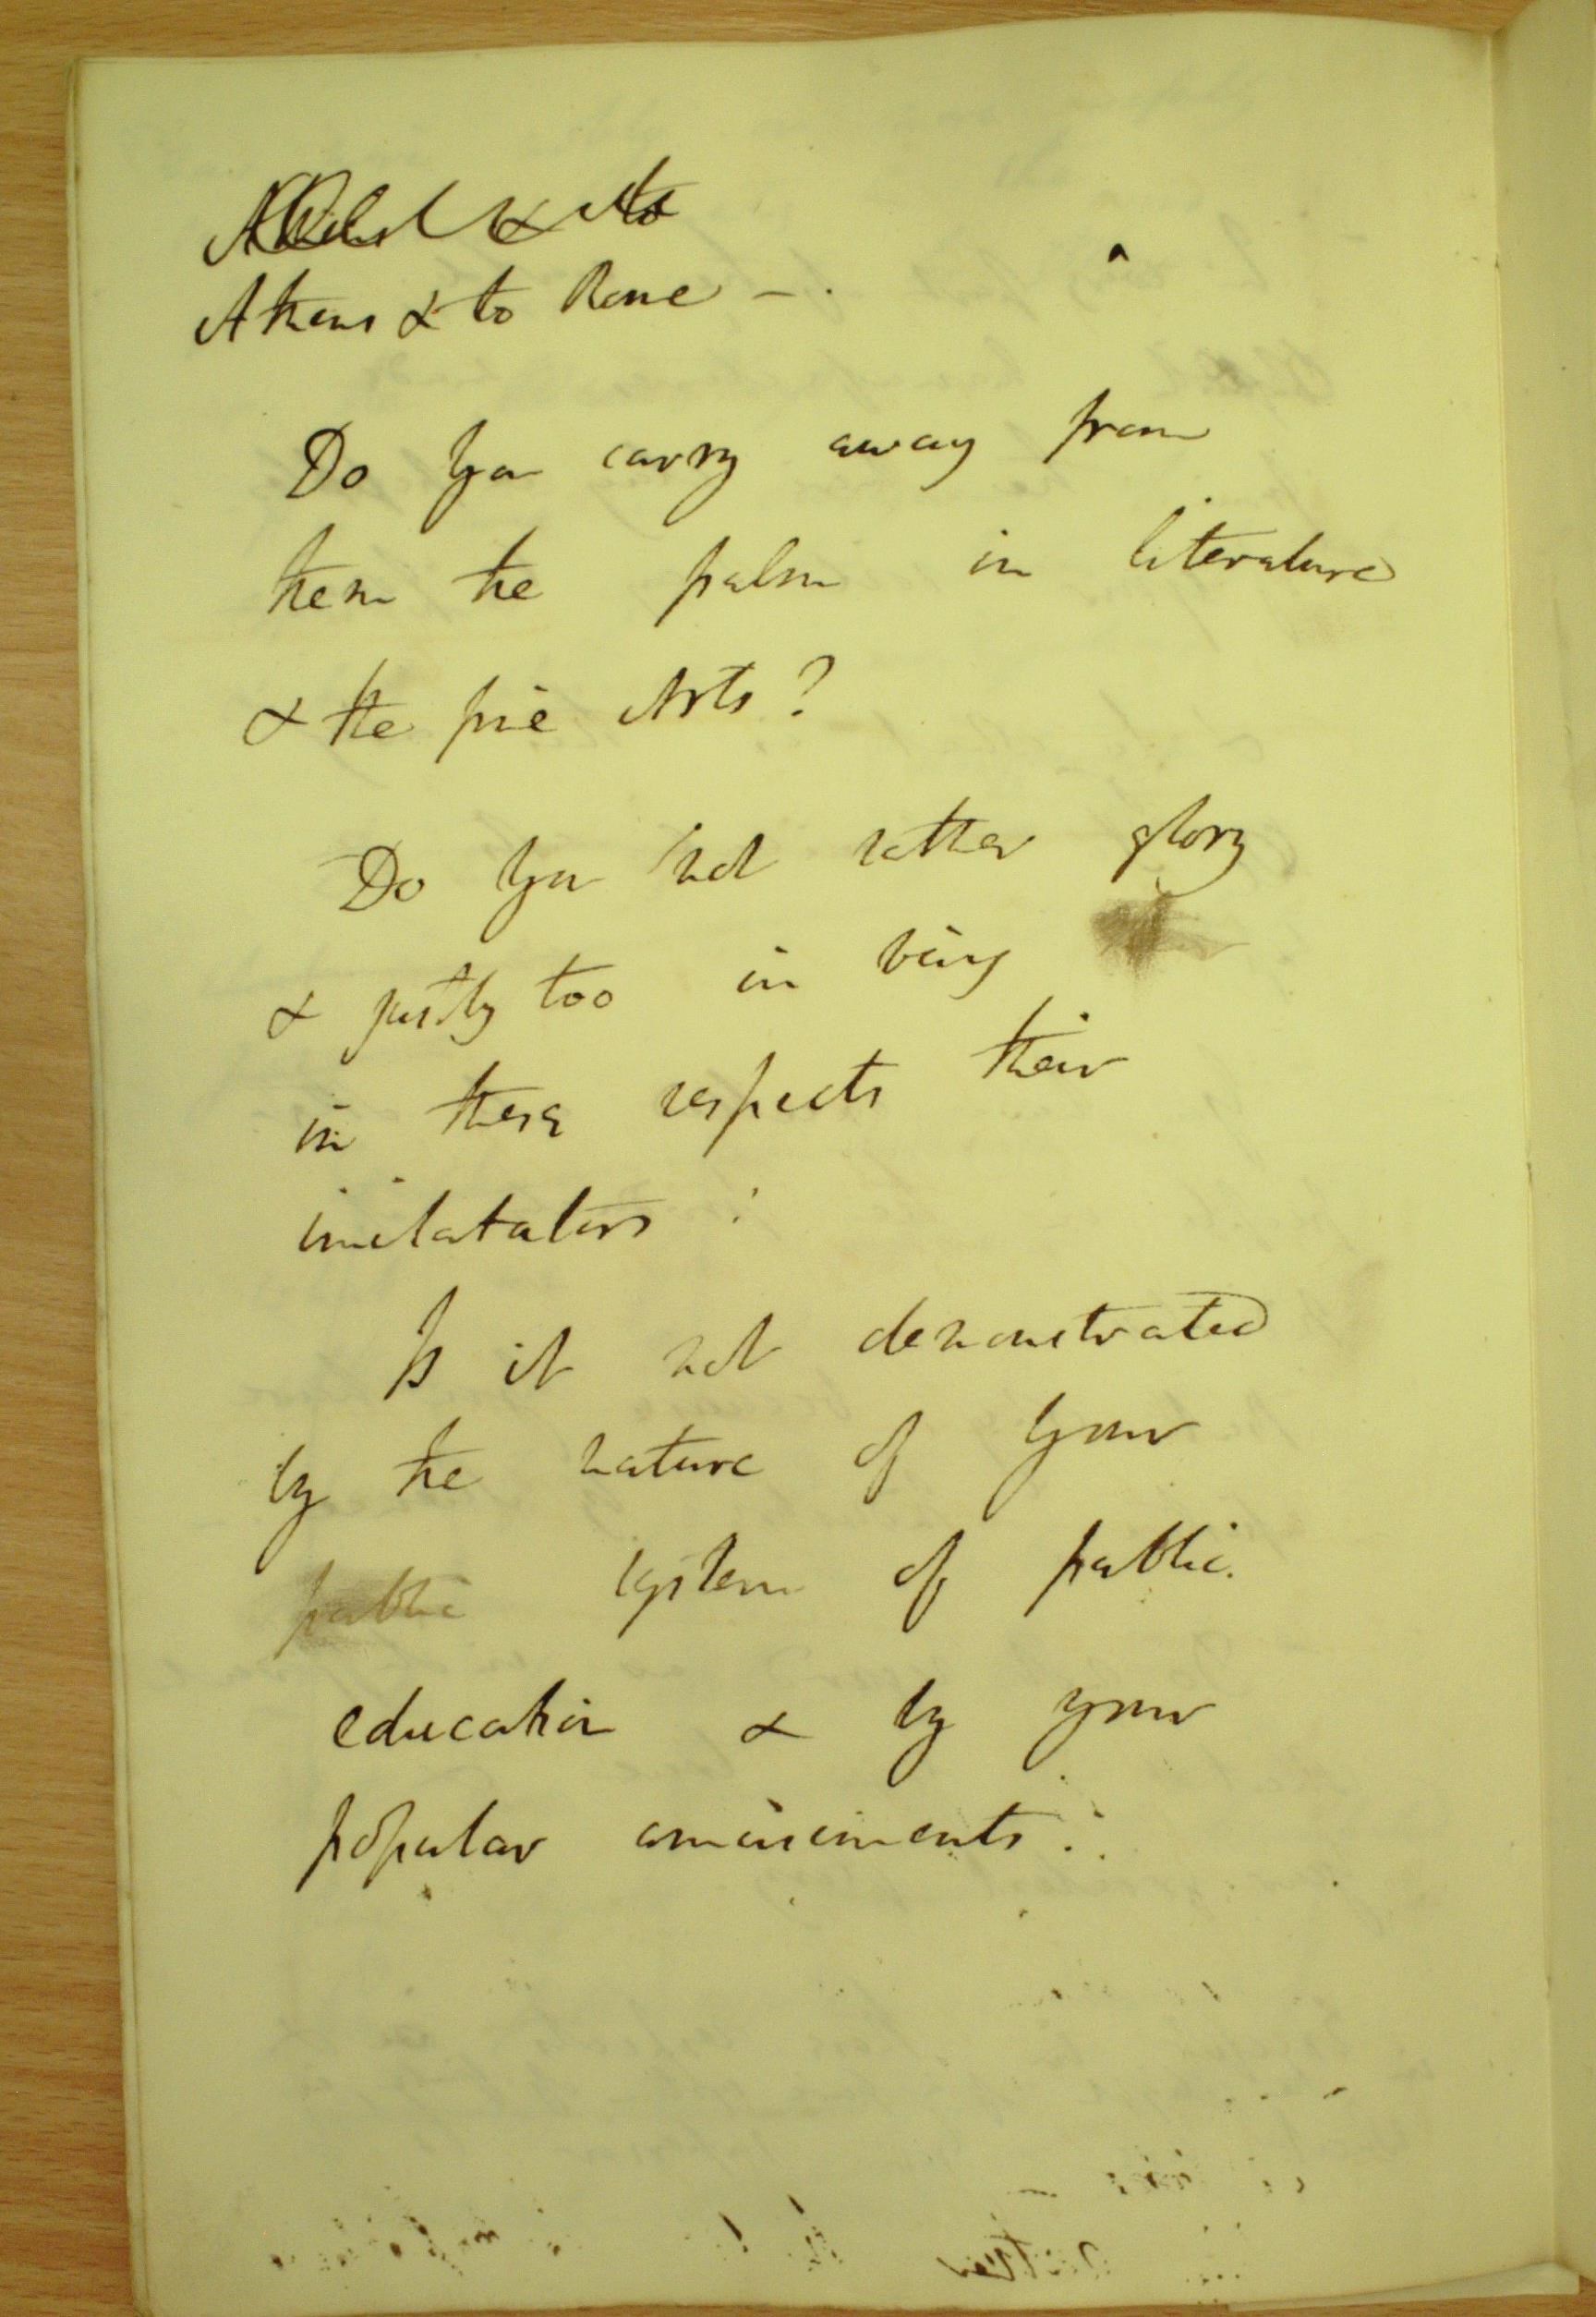 Athens & to Rome –.
Do you carry away from
them the palm in literature
& the fine Arts?
Do you not rather glory
& justly too in being
in these respects their
imitatators ?
Is it not demonstrated
by the nature of your
public system of public
education & by your
popular amusements ?